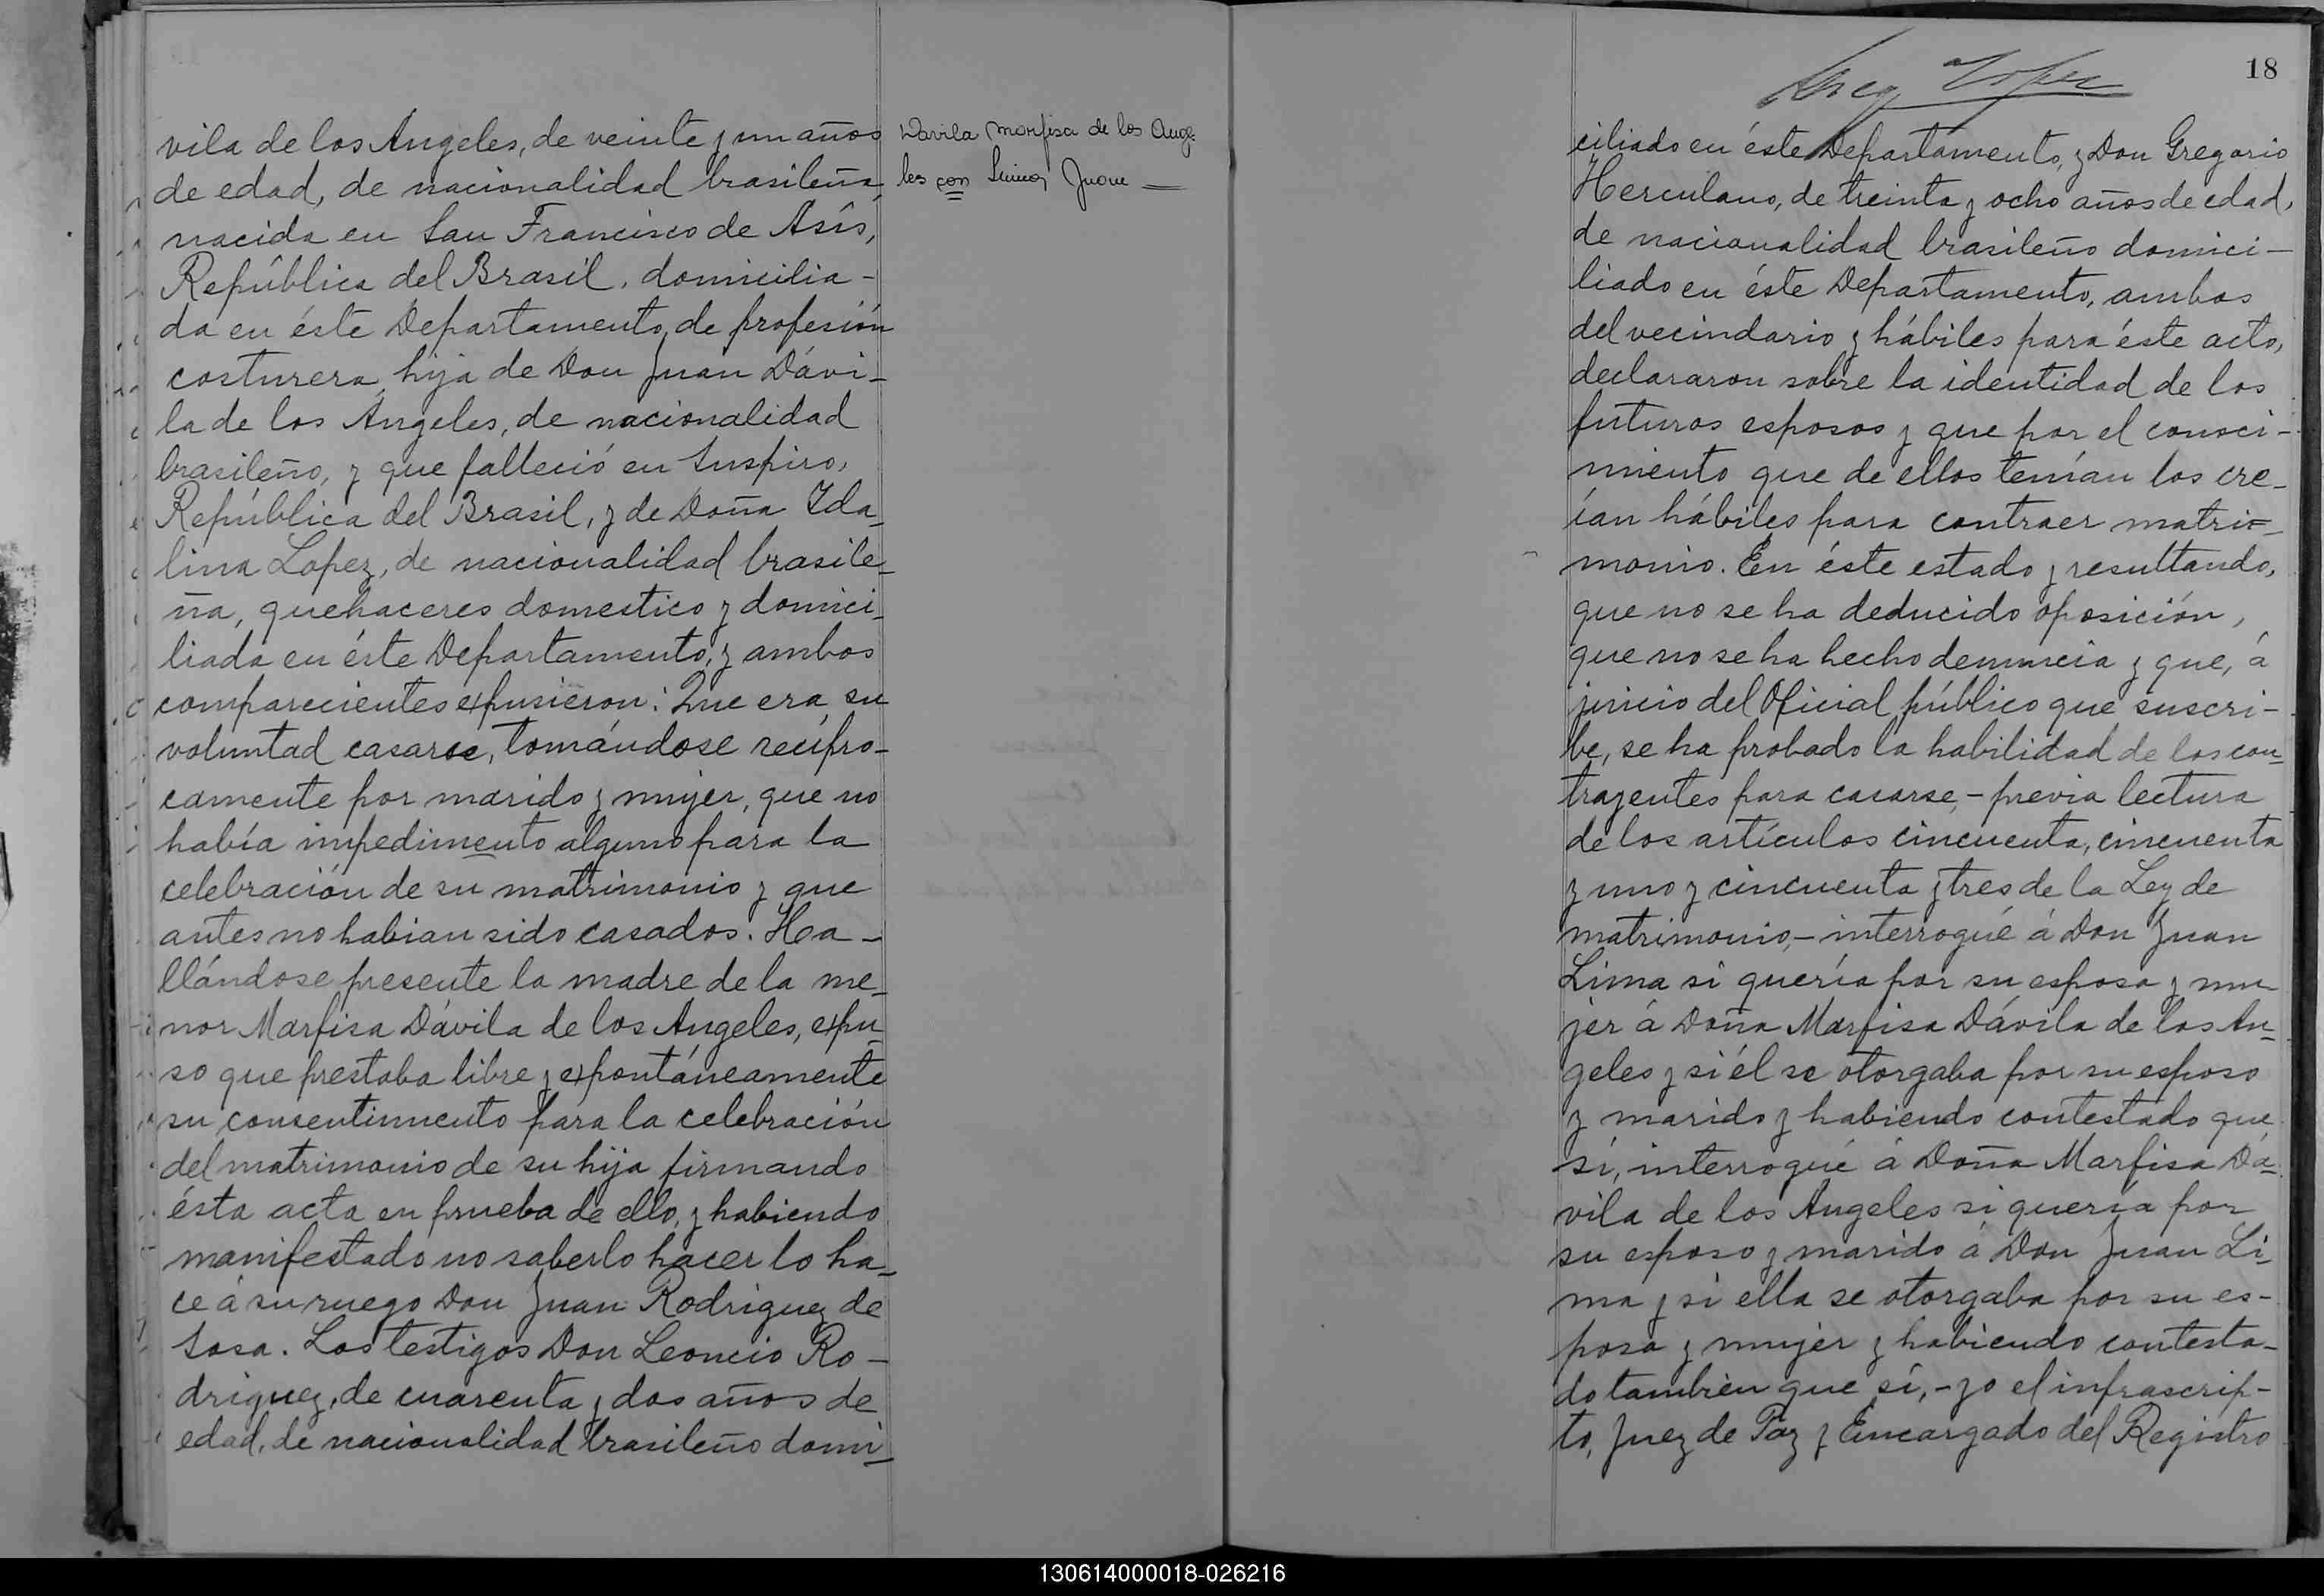 vila de los Ángeles, de veinte y un años
de edad, de nacionalidad brasileña,
nacida en San Francisco de Asís,
República del Brasil, domicilia-
da en éste Departamento, de profesión
costurera, hija de Don Juan Dávi-
la de los Ángeles, de nacionalidad
brasileño, y que falleció en Suspiro,
República del Brasil, y de Doña Ida-
lina Lopez, de nacionalidad brasile-
ña, quehaceres domestico y domici-
liada en éste Departamento, y ambos
comparecientes expusieron: Que era su
voluntad casarse, tomándose recípro-
camente por marido y mujer, que no
había impedimento alguno para la
celebración de su matrimonio y que
antes no habian sido casados. Ha-
llándose presente la madre de la me-
nor Marfisa Dávila de los Angeles, expu-
so que prestaba libre y expontáneamente
su consentimiento para la celebración
del matrimonio de su hija firmando
ésta acta en prueba de ello, y habiendo
manifestado no saberlo hacer lo ha-
ce á su ruego Don Juan Rodriguez de
Sosa. Los testigos Don Leoncio Ro-
driguez, de cuarenta y dos años de
edad, de nacionalidad brasileño domi-
Davila Marfisa de los Ange-
les con Lima Juan
18
ciliado en éste Departamento, y Don Gregorio
Herculano, de treinta y ocho años de edad,
de nacionalidad brasileño domici-
liado en éste Departamento, ambos
del vecindario y hábiles para éste acto,
declararon sobre la identidad de los
futuros esposos y que por el conoci-
miento que de ellos tenían los cre-
ían hábiles para contraer matri-
monio. En éste estado y resultando,
que no se ha deducido oposición,
que no se ha hecho denuncia y que, á
juicio del Oficial público que suscri-
be, se ha probado la habilidad de los con-
trayentes para casarse,- previa lectura
de los artículos cincuenta, cincuenta
y uno y cincuenta y tres de la Ley de
matrimonio,- interrogué á Don Juan
Lima si quería por su esposa y mu-
jer á Doña Marfisa Dávila de los An-
geles y si él se otorgaba por su esposo
y marido y habiendo contestado que
sí, interrogué á Doña Marfisa Dá-
vila de los Angeles si quería por
su esposo y marido á Don Juan Li-
ma y si ella se otorgaba por su es-
posa y mujer y habiendo contesta-
do tambien que sí,- yo el infrascrip-
to, Juez de Paz y Encargado del Registro
130614000018-026216